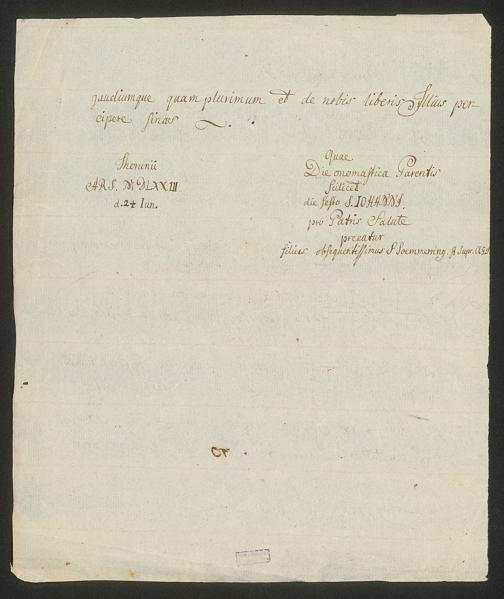 gaudiumque quam plurimum et de nobis liberis Illius per-
cipere sinas
Thorunii
d. 24 Iun.
Quae
Die onomastica Parentis
scilicet
die festo S. IOHANNI.
pro Patris Salute
precatur
filius obsequentissimus S Soemmering.